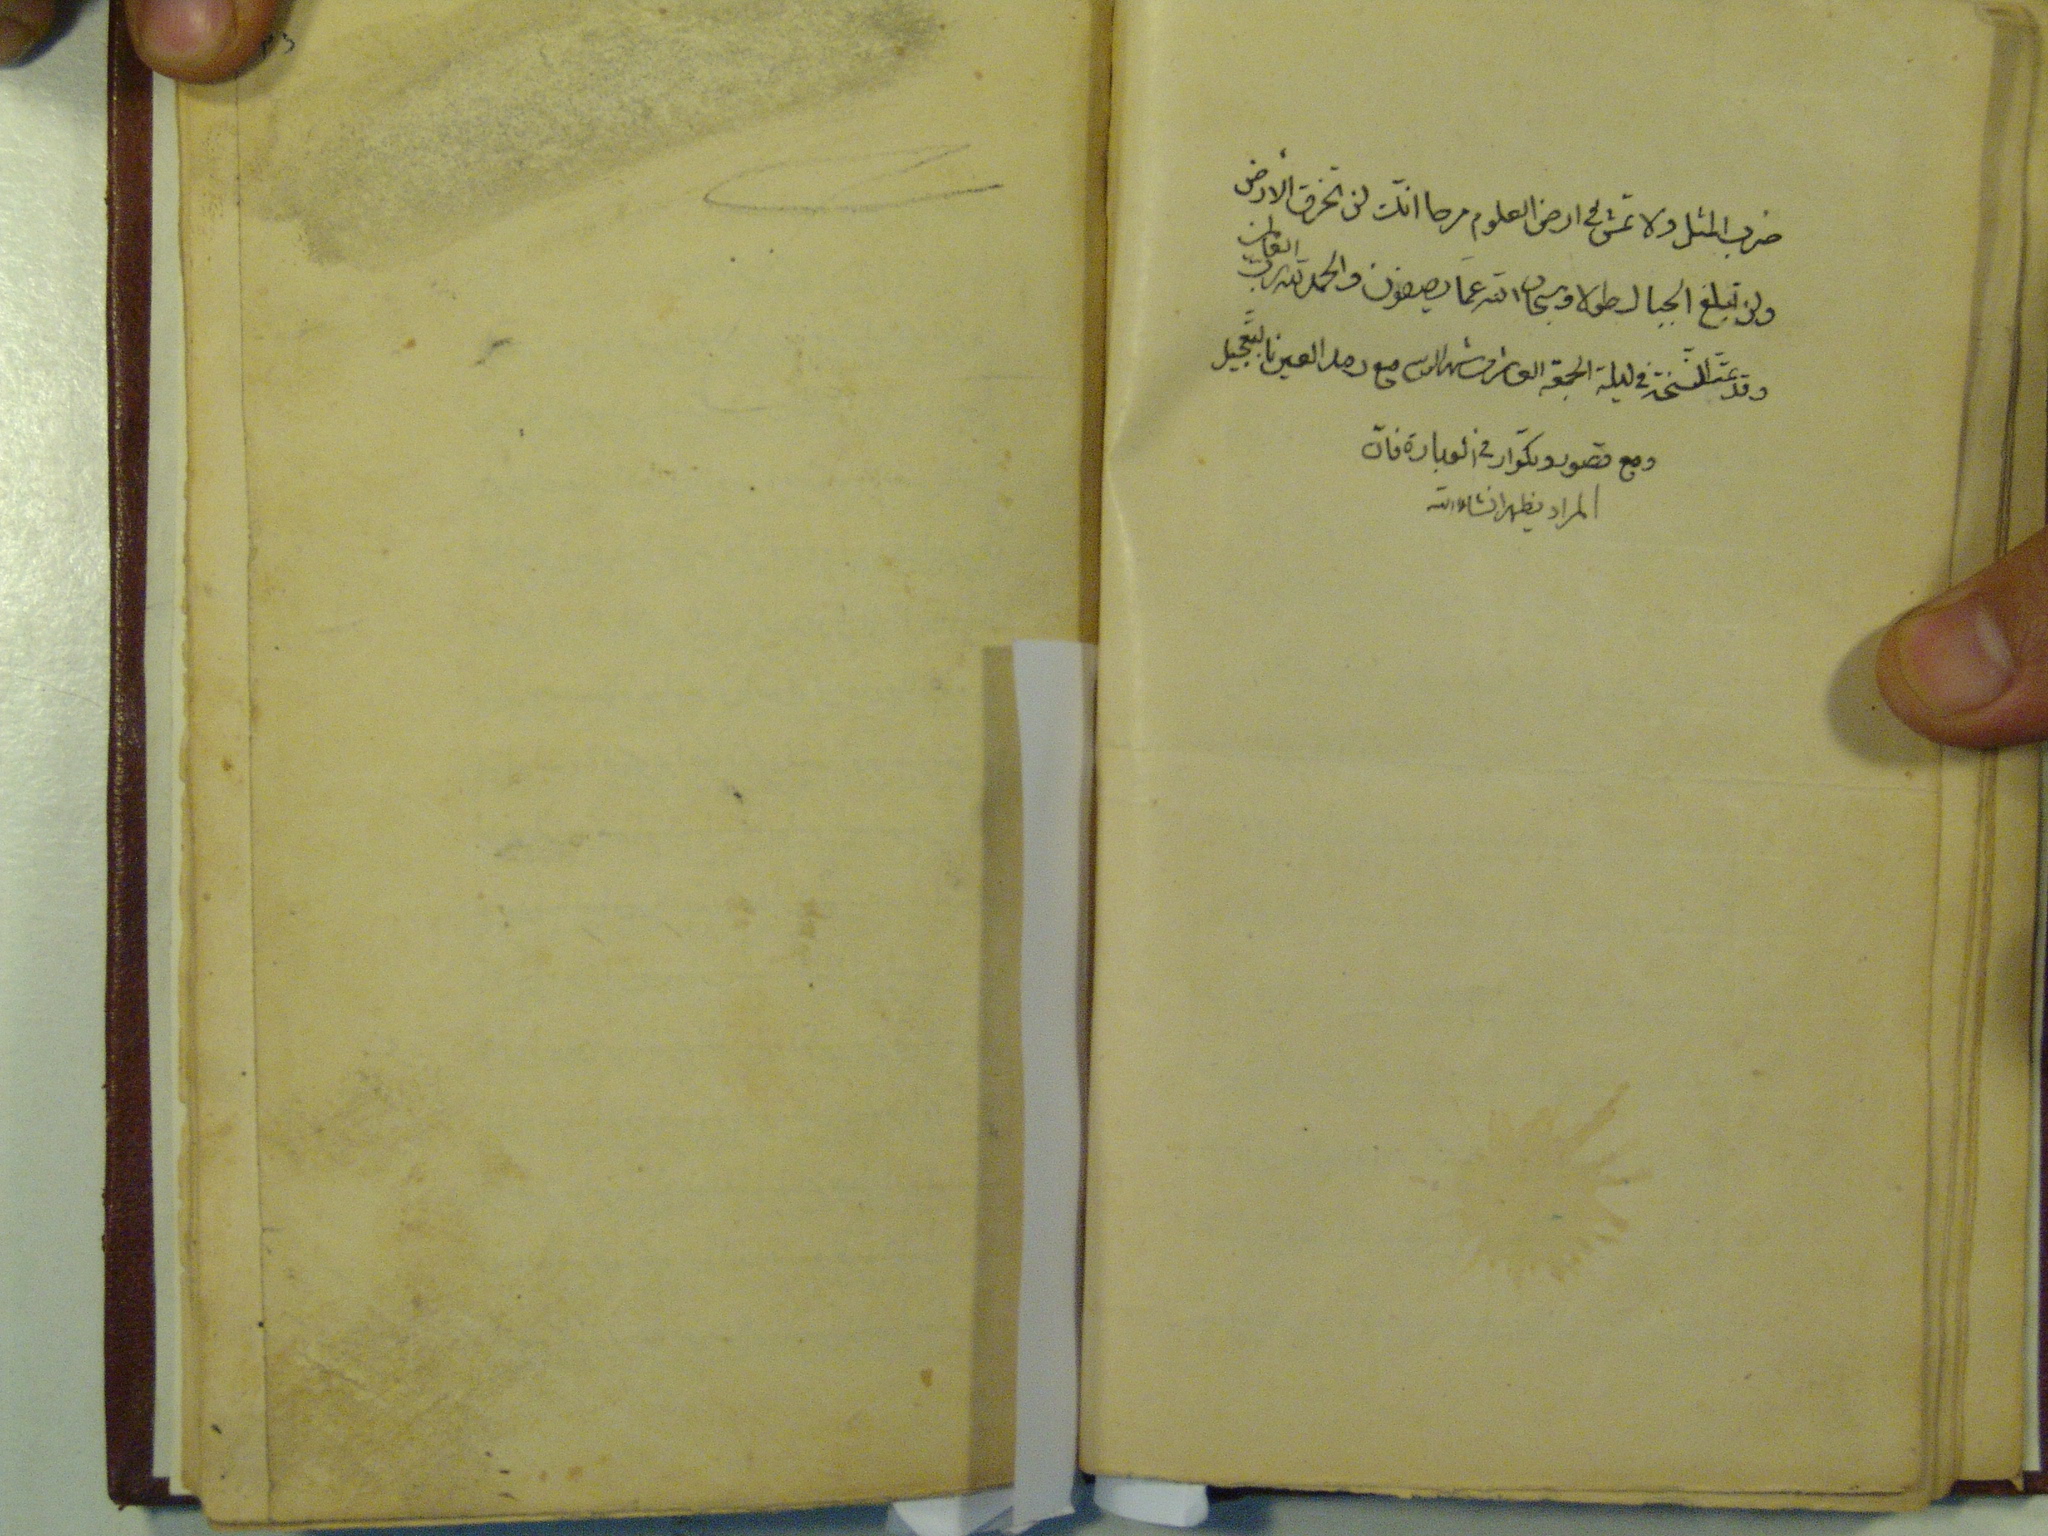 ضرب المثل ولا تمش في ارض العلوم مرحا انك لن تخرق الأرض
ولن تبلغ الجبال طولا وسبحان الله عما يصفون والحمد لله رب العالمين
وقد تمت النسخة في ليلة الجمعة العاشر من شهر مع رمد العين بالتعجيل
ومع قصور وتكرار في العبارة فان
المراد يظهر انشاء الله